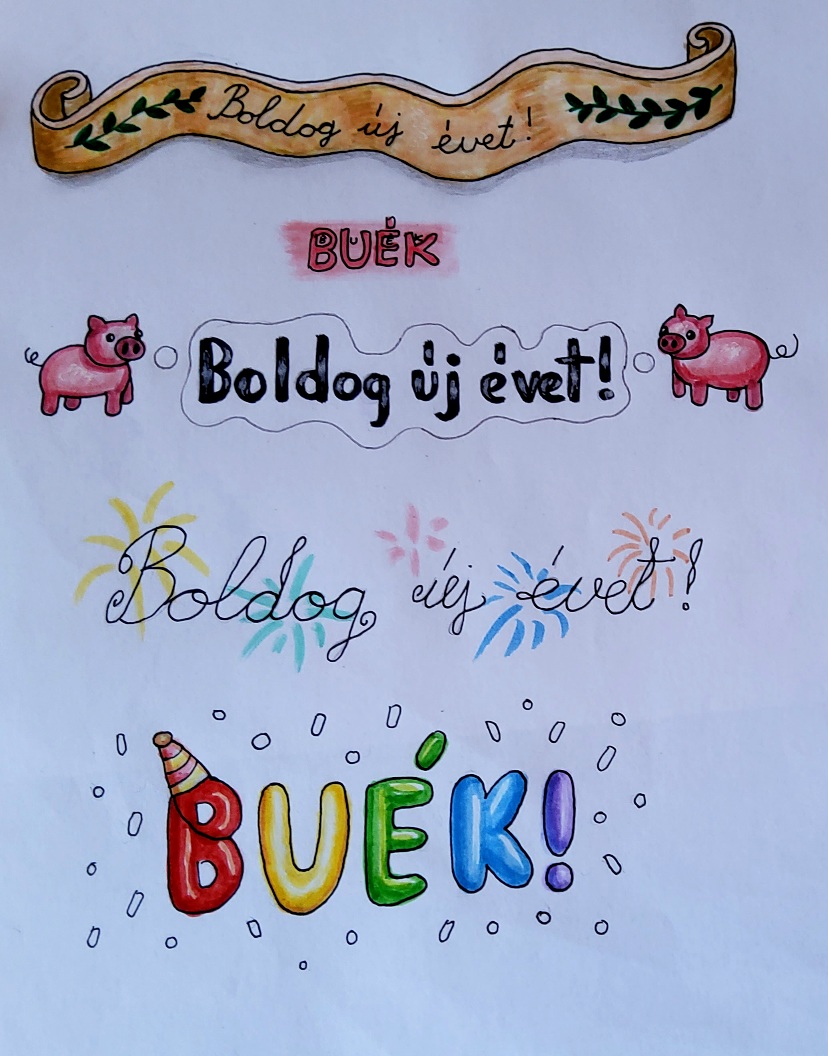 Boldog új évet!
BUÉK
Boldog új évet!
Boldog új évet!
BUÉK!